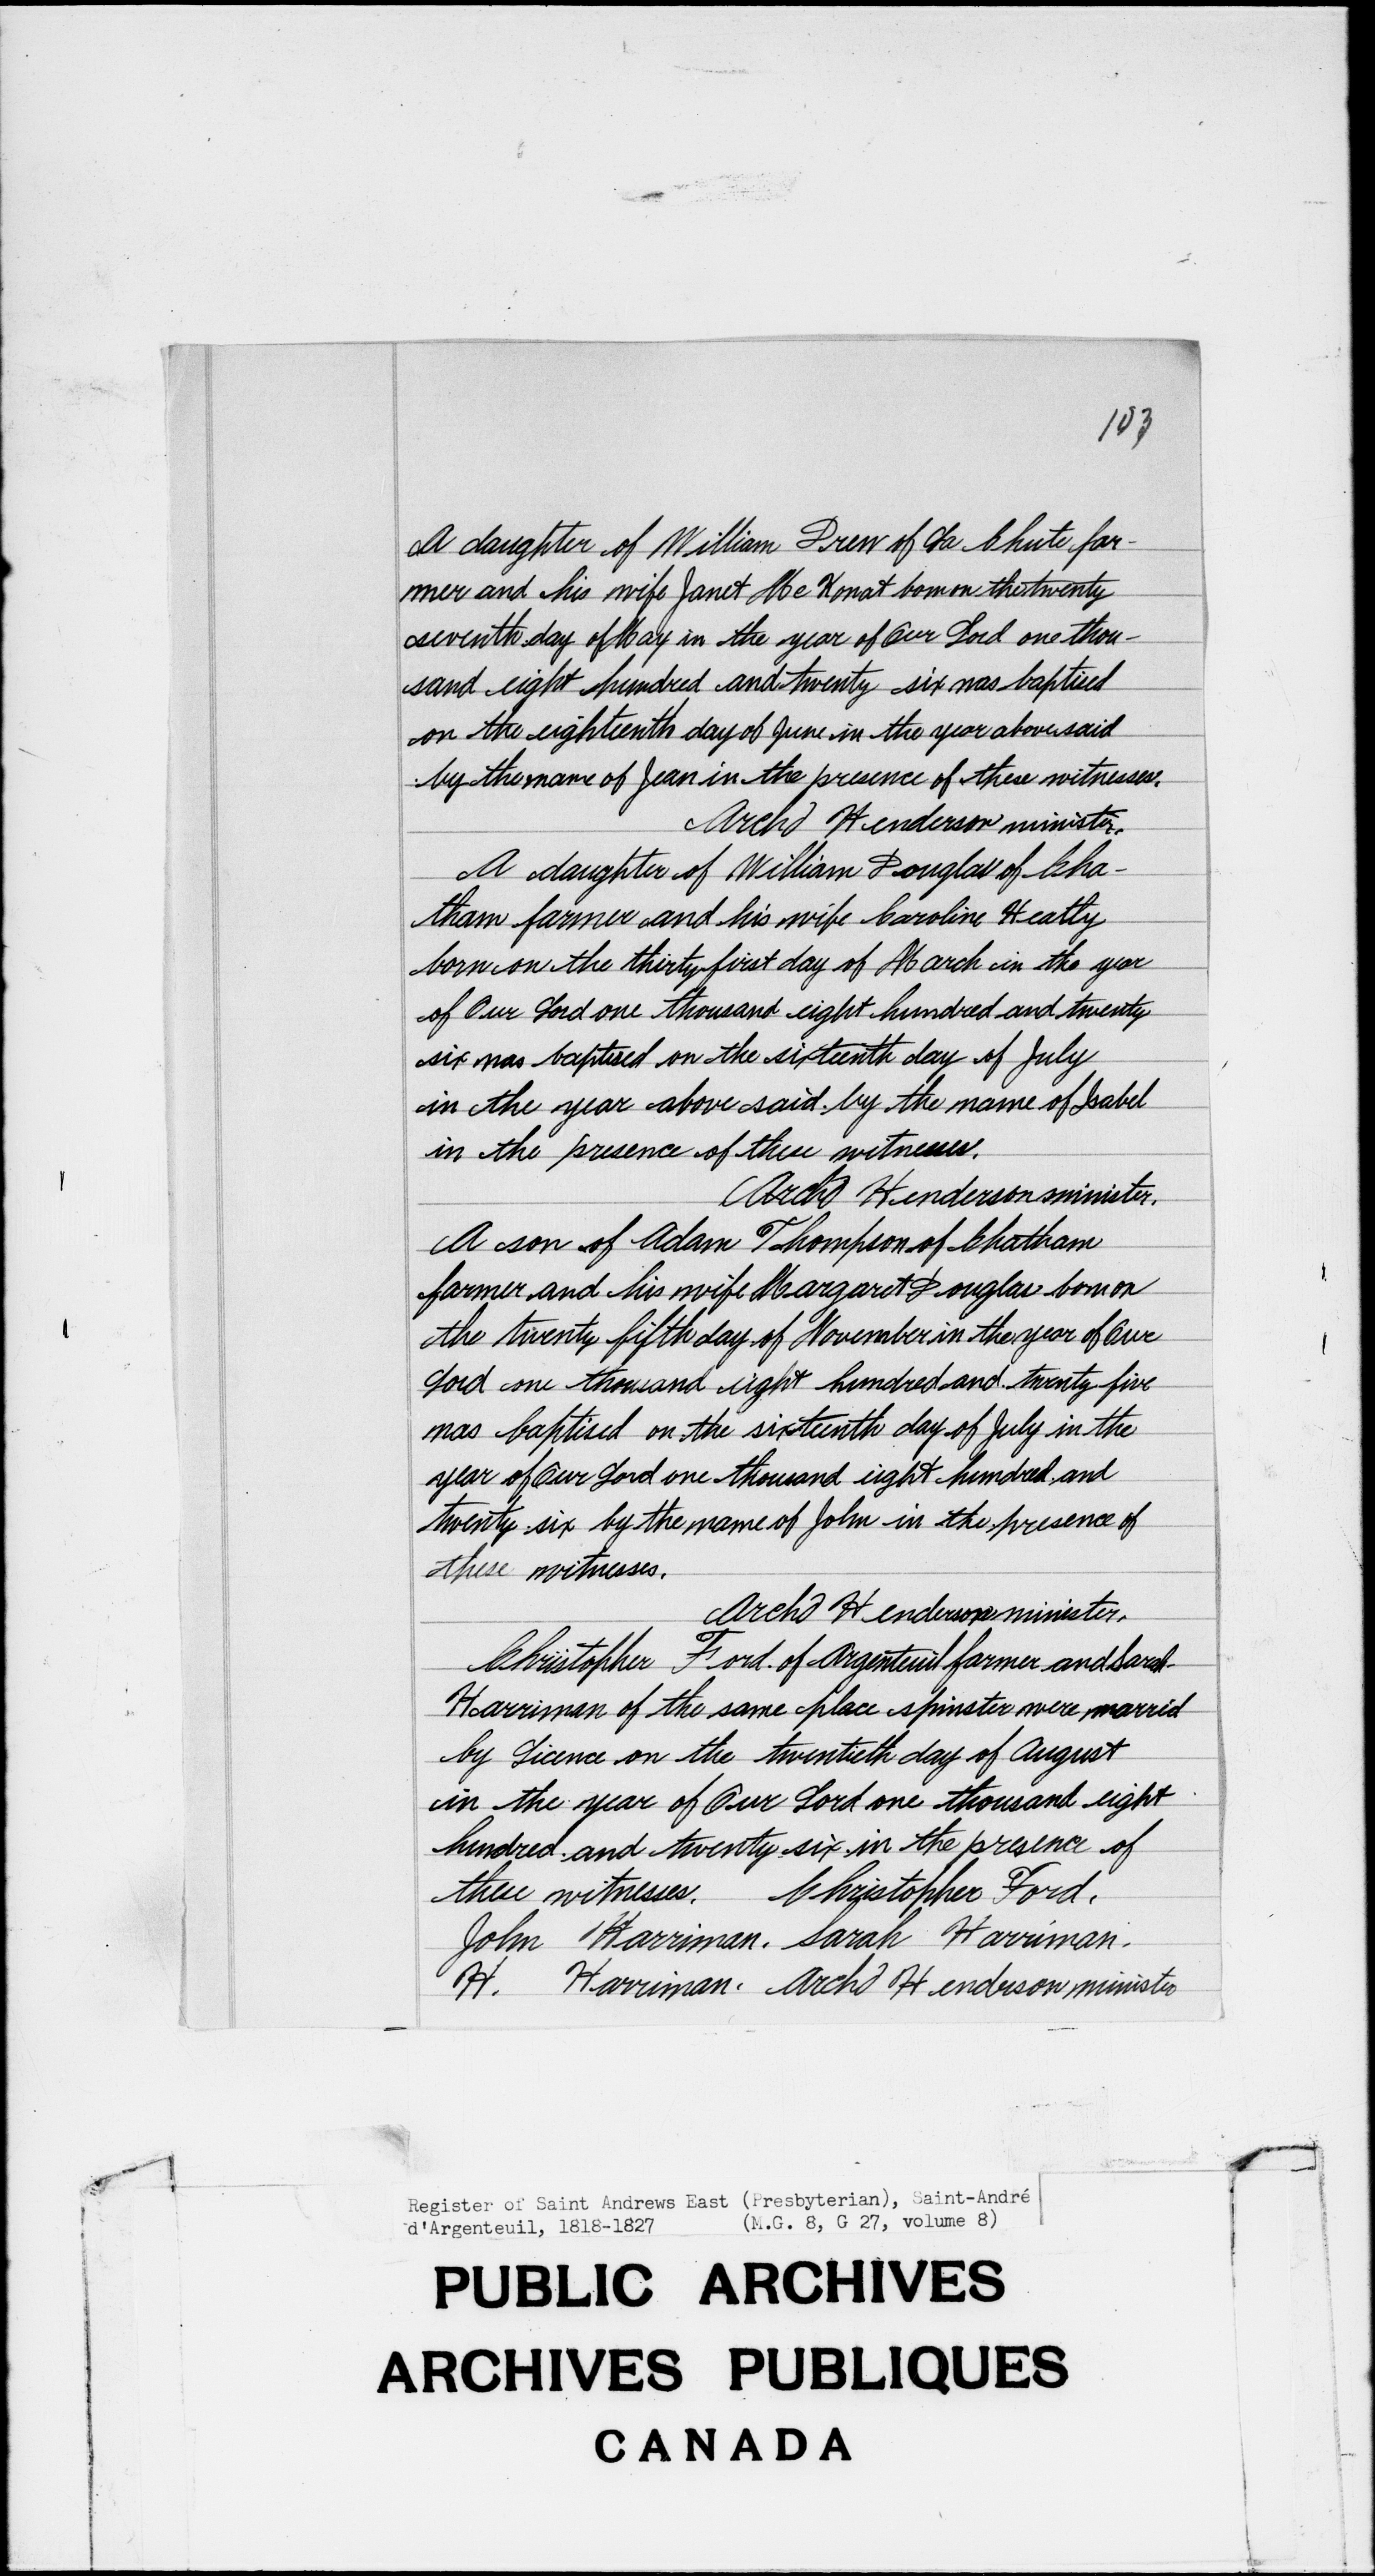 103
A daughter of William Drew of La Chute far-
mer and his wife Janet Mc Konat born on the twenty
seventh day of May in the year of Our Lord one thou-
sand eight hundred and twenty six was baptised
on the eighteenth day of June in the year above said
by the name of Jean in the presence of these witnesses.
Archd Henderson minister.
A daughter of William Douglas of Cha-
tham farmer and his wife Caroline Heatly
born on the thirty first day of March in the year
of Our Lord one thousand eight hundred and twenty
six was baptised on the sixteenth day of July
in the year above said by the name of Isabel
in the presence of these witnesses.
Archd Henderson minister.
A son of Adam Thompson of Chatham
farmer and his wife Margaret Douglas born on
the twenty fifth day of November in the year of Our
Lord one thousand eight hundred and twenty five
was baptised on the sixteenth day of July in the
year of Our Lord one thousand eight hundred and
twenty six by the name of John in the presence of
these witnesses.
Archd Henderson minister.
Christopher Ford of Argenteuil farmer and Sarah
Harriman of the same place spinster were married
by Licence on the twentieth day of August
in the year of Our Lord one thousand eight
hundred and twenty six in the presence of
these witnesses. Christopher Ford.
John Harriman. Sarah Harriman.
H. Harriman. Archd Henderson minister
Register of Saint Andrews East (Presbyterian), Saint-André
d'Argenteuil, 1818-1827 (M.G. 8, G 27, volume 8)
PUBLIC ARCHIVES
ARCHIVES PUBLIQUES
CANADA